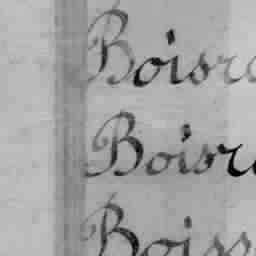 Boisr
Boisr
Boiss